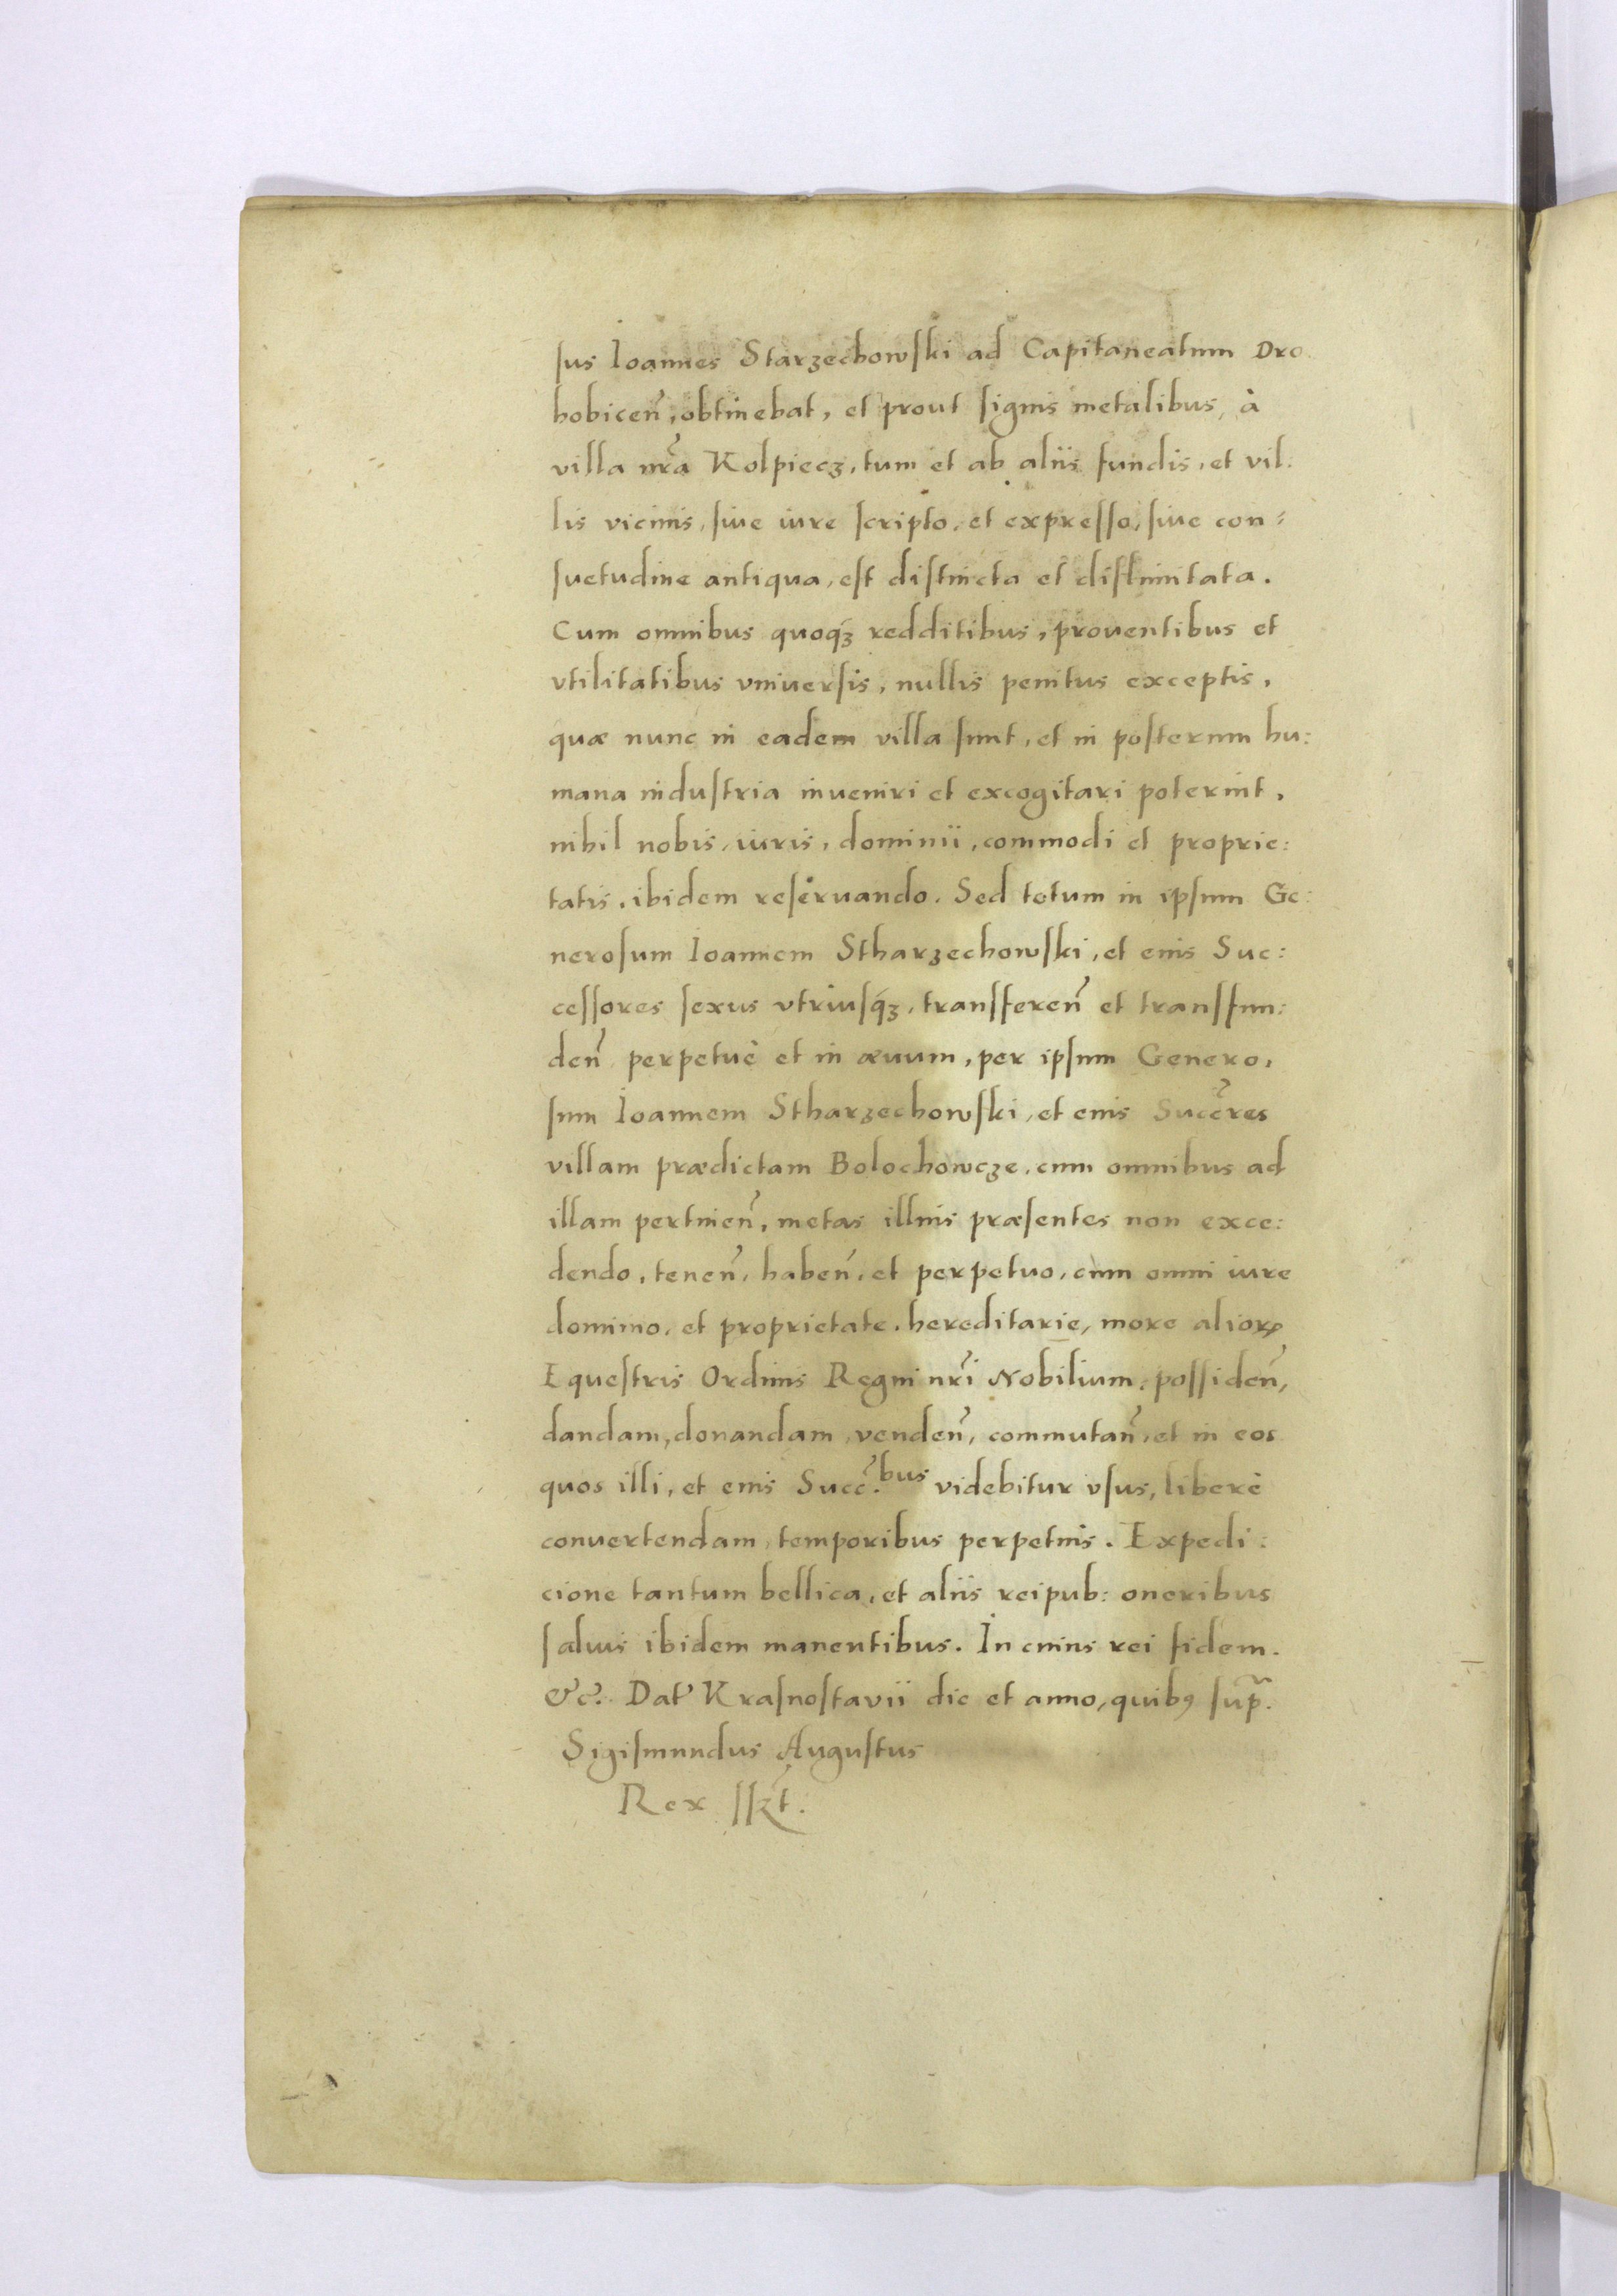 sus Ioannes Starzechowski ad Capitaneatum Dro
hobicen̄, obtinebat, et prout signis metalibus, à
villa nr̄a Kolpiecz, tum et ab aliis fundis, et vil.
lis vicinis, siue iure scripto, et expresso, siue con:
suetudine antiqua, est distincta et dislimitata.
Cum omnibus quoqꝫ redditibus, prouentibus et
vtilitatibus vniuersis, nullis penitus exceptis,
quæ nunc in eadem villa sunt, et in posterum hu:
mana industria inueniri et excogitari poterint,
nihil nobis, iuris, dominii, commodi et proprie:
tatis, ibidem reseruando. Sed totum in ipsum Ge:
nerosum Ioannem Stharzechowski, et eius Suc:
cessores sexus vtriusqꝫ, transferen̄ et transfun:
den̄ perpetuè et in æuum, per ipsum Genero,
sum Ioannem Stharzechowski, et eius Succ̄res
villam prædictam Bolochowcze, cum omnibus ad
illam pertinen̄, metas illius præsentes non exce:
dendo, tenen̄, haben̄, et perpetuo, cum omni iure
dominio, et proprietate, hereditarie, more alioꝝ
Equestris Ordinis Regni nr̄i Nobilium, possiden̄,
dandam, donandam, venden̄, commutan̄, et in eos
quos illi, et eius Succ̄.bus videbitur vsus, liberè
conuertendam, temporibus perpetuis. Expedi:
cione tantum bellica, et aliis reipub: oneribus
saluis ibidem manentibus. In cuius rei fidem.
&c̄. Dat' Krasnostavii die et anno, quibꝰ sup̄.
Sigismundus Augustus
Rex sſt̄.